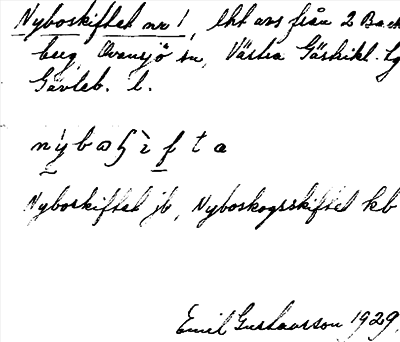 Nyboskiftet nr 1, lht avs från 2 Back
berg, Ovansjö sn, Västra Gästrikl. Lg
Gävleb. l.
nybosi̇fta
Nyboskiftet jb, Nyboskogsskiftet kb
Emil Gustavsson 1929.